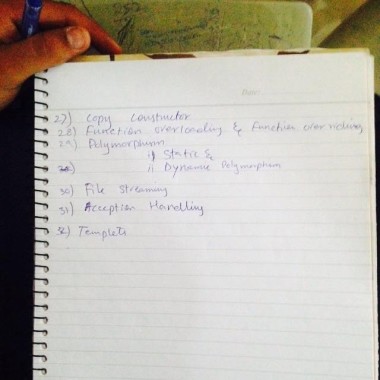 Date:
27) Copy Constructor
28) Function overloading & Function overriding
29) Polymorphism
i) Static &
ii. Dynamic Polymorphism
30) File Streaming
31) Acception Handling
32) Templets